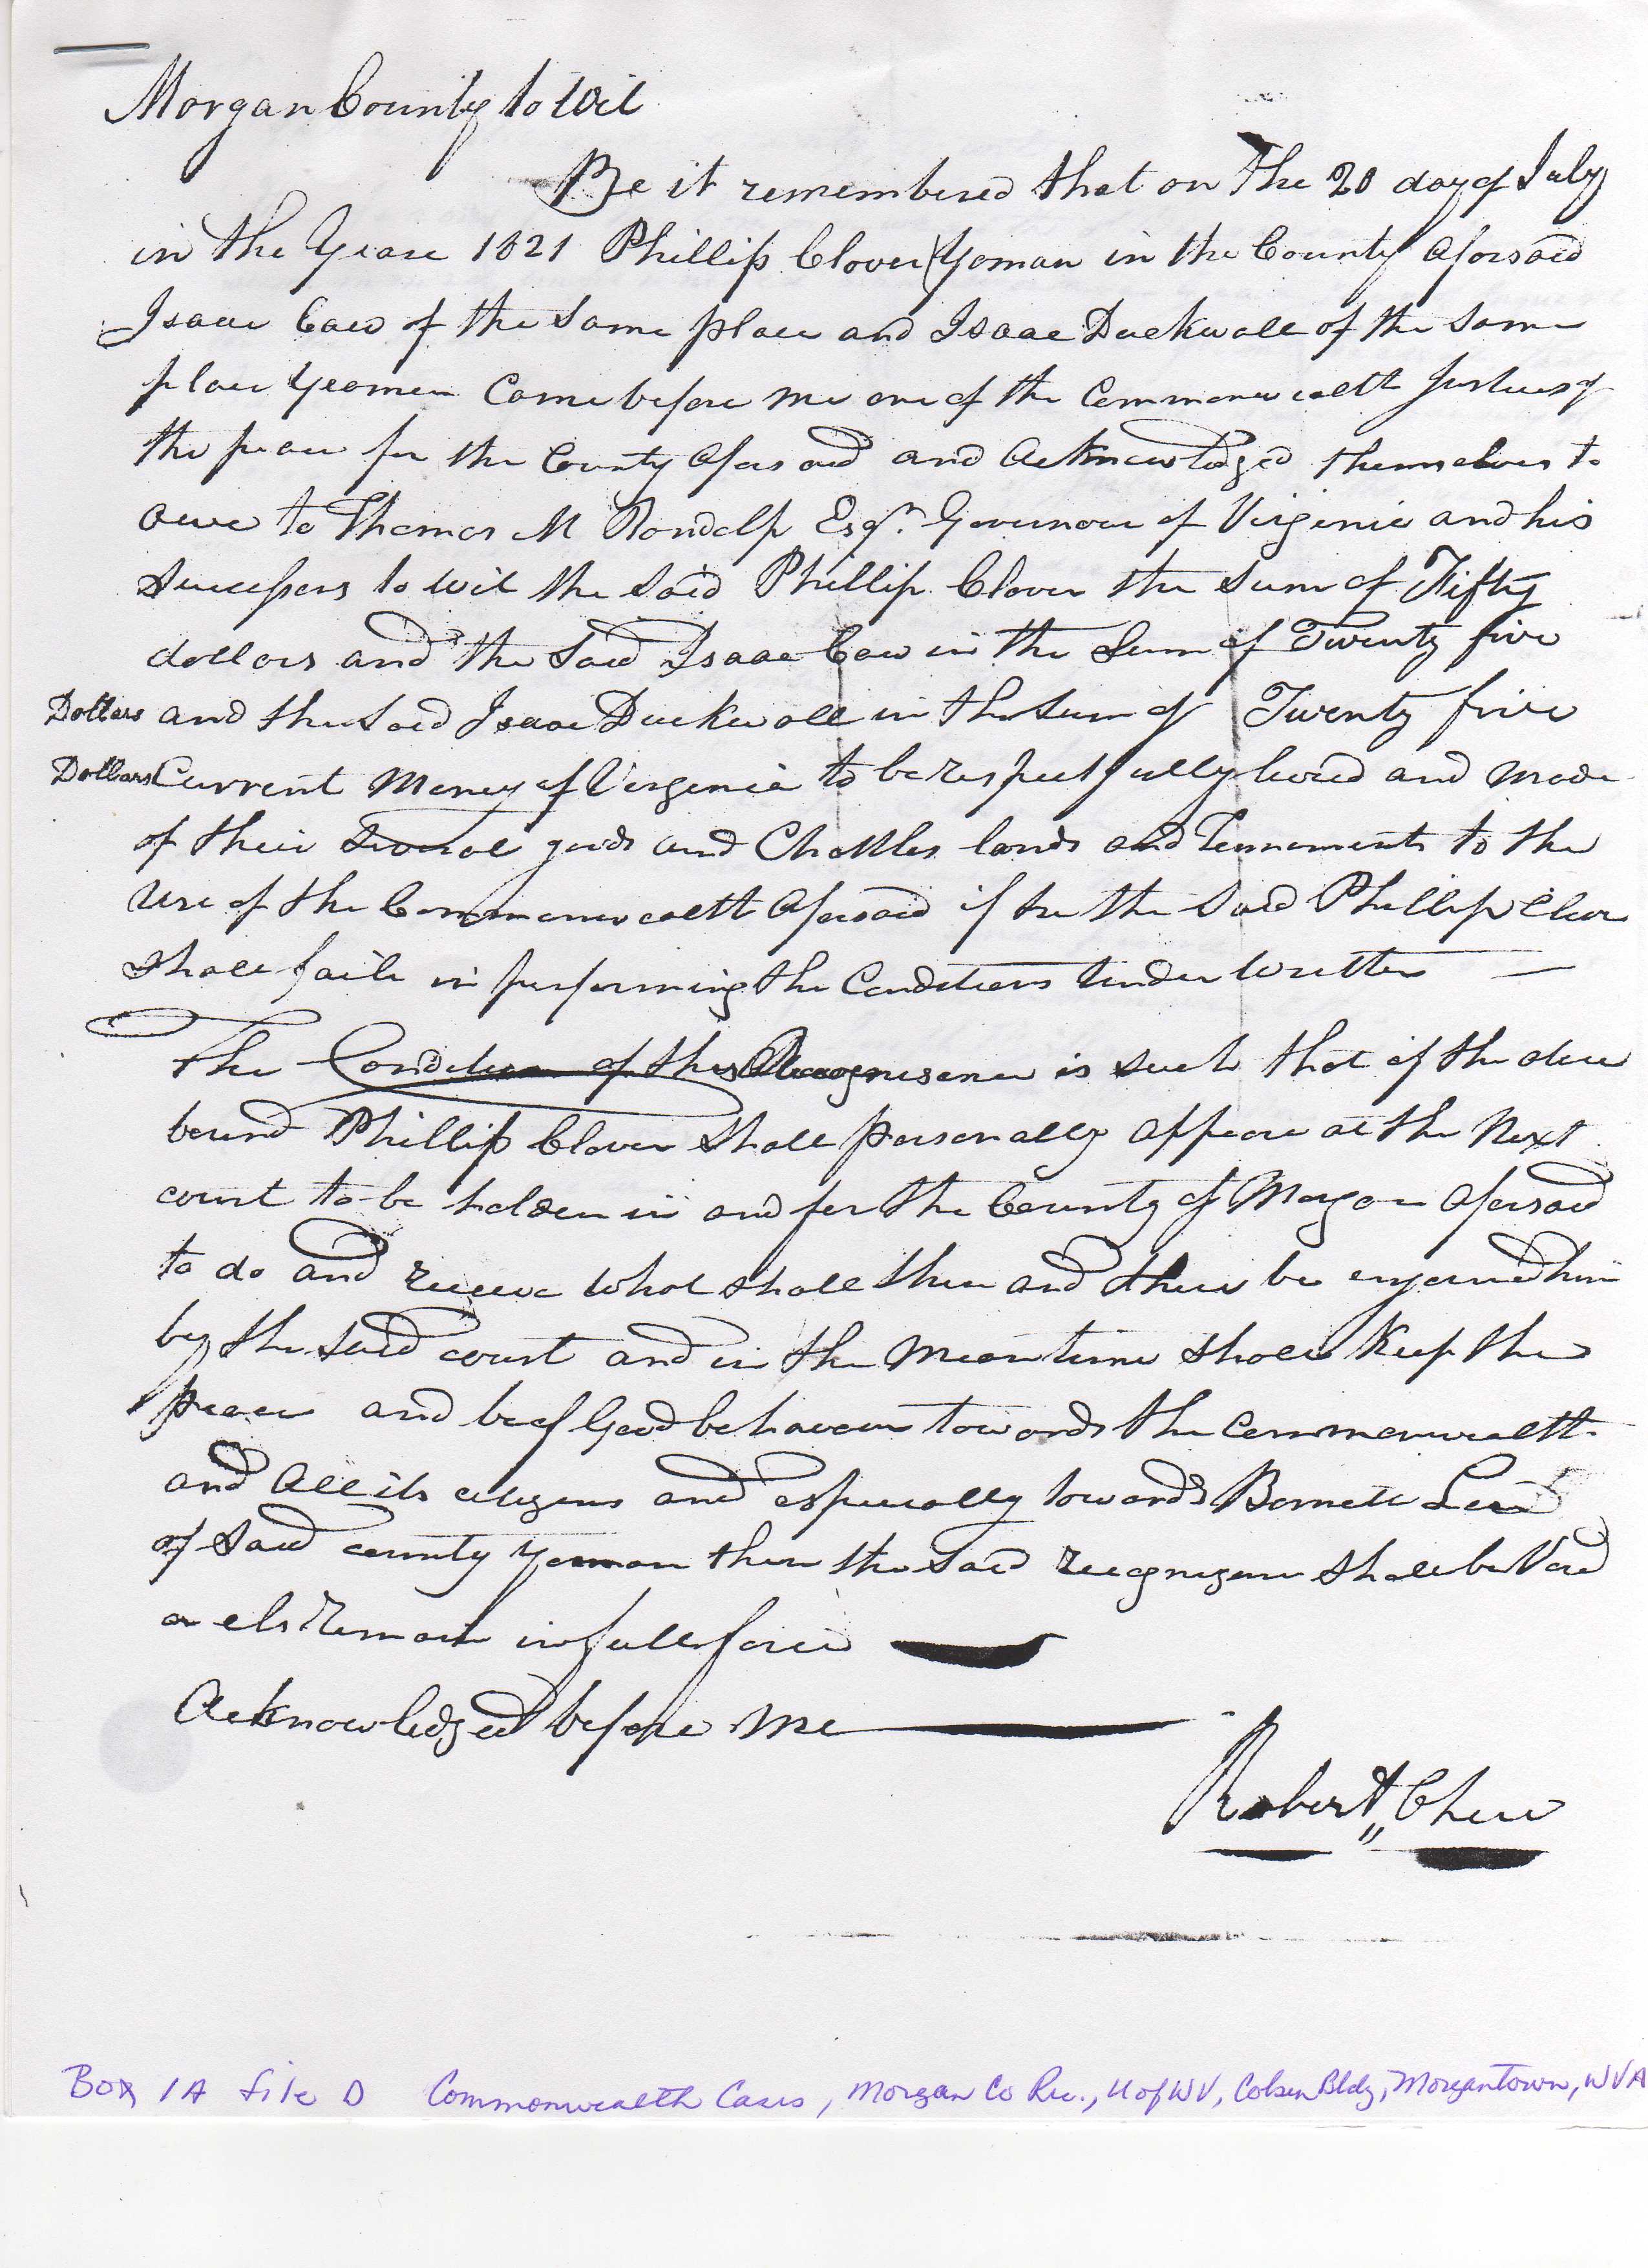 Morgan County to Wit
Be it remembered that on the 20 day of July
in the Yeare 1821 Phillip Clover Yoman in the County aforsaid
Isaac Caw of the same place and Isaac Duckwall of the same
place Yeomen Came before me one of the Commonwealth Justices of
the peace for the County aforsaid and Acknowledged themselves to
owe to Thomas M Randolp Esqr. Governour of Virginia and his
Successors to wit the said Phillip Clover the sum of Fifty
dollars and the said Isaac Caw in the Sum of Twenty five
Dollars and the said Isaac Duckwall in the sum of Twenty five
Dollars Current Money of Virginia to be respectfully levied and made
of their several goods and Chattles lands and Tennements to the
use of the Commonwealth aforsaid if he the said Phillip Clover
shall faile in performing the Conditions under written
The Condition of this Recognisance is such that if the above
bound Phillip Clover shall personally appeare at the Next
court to be holden in and for the County of Morgan aforsaid
to do and receive what shall then and there be enjoined him
by the said court and in the mean time shall Keep the
peace and be of Good behaveour towards the Commonwealth
and All its citizens and especially towards Barnett
of said county Yeoman then the said recognizance shall be Void
or els remain in full force
Acknowledged before me
Robert Chew
Box 1A File D Commonwealth Cases, Morgan Co Rec., U of WV, Colson Bldg, Morgantown, WVA